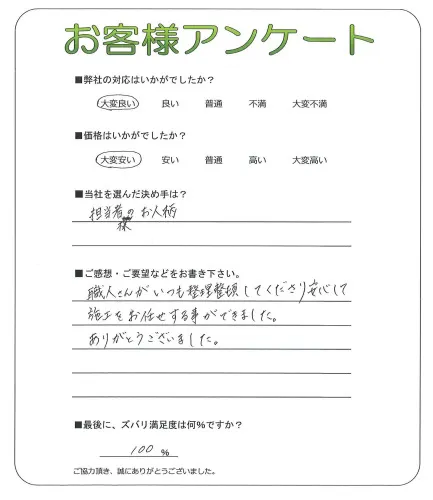 お客様アンケート
■弊社の対応はいかがでしたか?
大変良い 良い 普通 不満 大変不満
■価格はいかがでしたか?
大変安い 安い 普通 高い 大変高い
■当社を選んだ決め手は?
担当者様のお人柄
■ご感想・ご要望などをお書き下さい。
職人さんがいつも整理整頓してくださり安心して
施工をお任せする事ができました。
ありがとうございました。
■最後に、ズバリ満足度は何%ですか?
100 %
ご協力頂き、誠にありがとうございました。